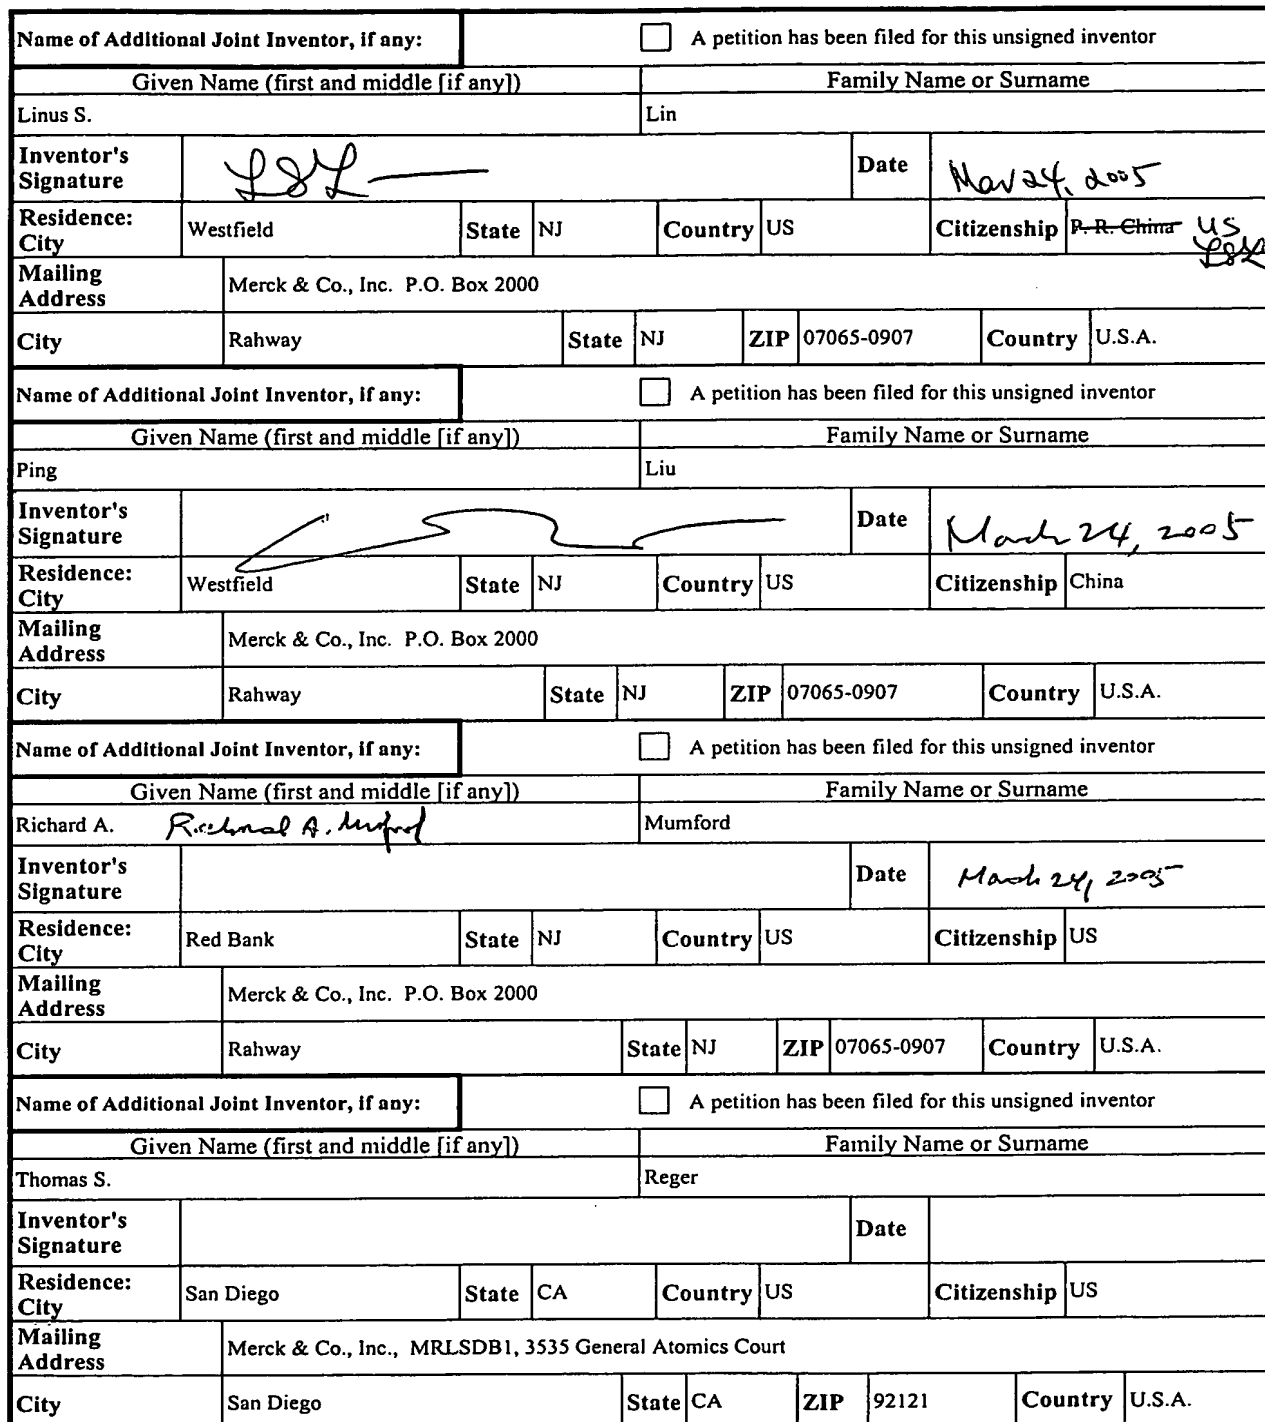 Name of Additional Joint Inventor, if any: A petition has been filed for this unsigned inventor
Given Name (first and middle [if any]) Family Name or Surname
Linus S. Lin
Inventor's Signature LSL Date Mar 24, 2005
Residence: City Westfield State NJ Country US Citizenship P. R. China US
LSL
Mailing Address Merck & Co., Inc. P.O. Box 2000
City Rahway State NJ ZIP 07065-0907 Country U.S.A.
Name of Additional Joint Inventor, if any: A petition has been filed for this unsigned inventor
Given Name (first and middle [if any]) Family Name or Surname
Ping Liu
Inventor's Signature Date March 24, 2005
Residence: City Westfield State NJ Country US Citizenship China
Mailing Address Merck & Co., Inc. P.O. Box 2000
City Rahway State NJ ZIP 07065-0907 Country U.S.A.
Name of Additional Joint Inventor, if any: A petition has been filed for this unsigned inventor
Given Name (first and middle [if any]) Family Name or Surname
Richard A. Richard A. Mumford Mumford
Inventor's Signature Date March 24, 2005
Residence: City Red Bank State NJ Country US Citizenship US
Mailing Address Merck & Co., Inc. P.O. Box 2000
City Rahway State NJ ZIP 07065-0907 Country U.S.A.
Name of Additional Joint Inventor, if any: A petition has been filed for this unsigned inventor
Given Name (first and middle [if any]) Family Name or Surname
Thomas S. Reger
Inventor's Signature Date
Residence: City San Diego State CA Country US Citizenship US
Mailing Address Merck & Co., Inc., MRLSDB1, 3535 General Atomics Court
City San Diego State CA ZIP 92121 Country U.S.A.